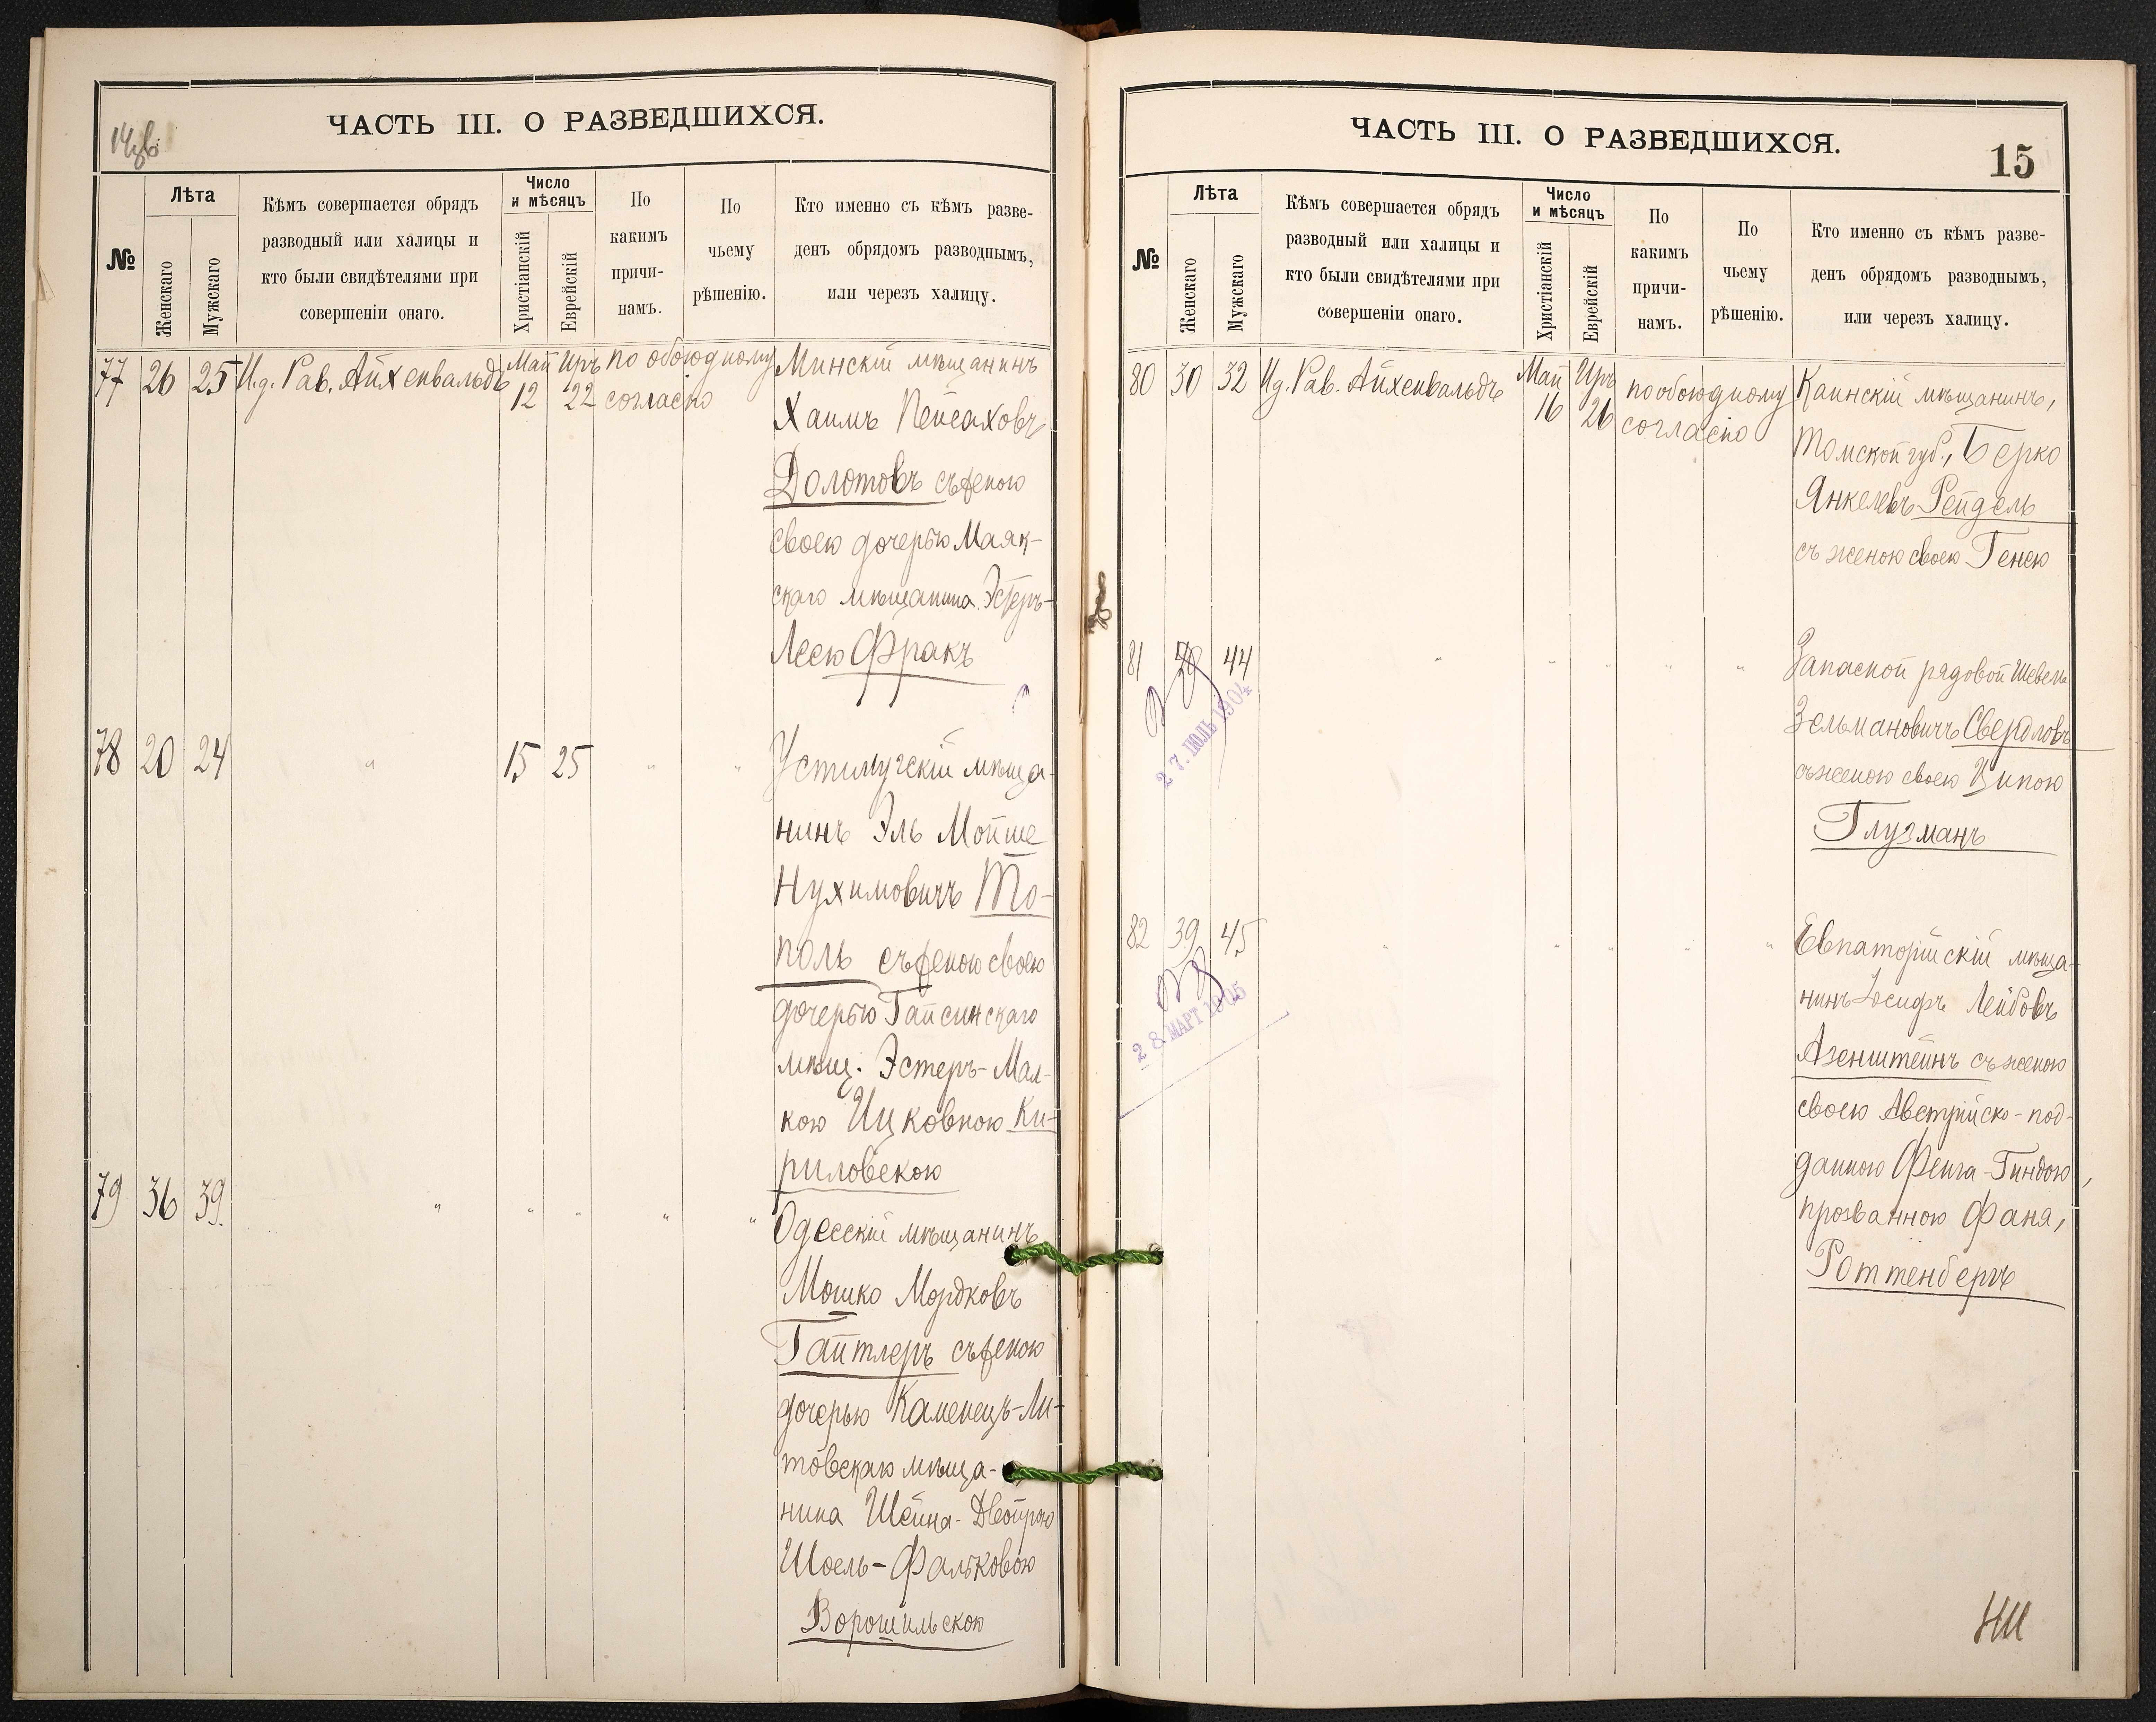 14 об.
ЧАСТЬ III. О РАЗВЕДШИХСЯ.
№
Лѣта
Женскаго
Мужскаго
Кѣмъ совершается обрядъ
разводный или халицы и
кто были свидѣтелями при
совершеніи онаго.
Число
и мѣсяцъ
Христіанскій
Еврейскій
По
какимъ
причи-
намъ.
По
чьему
рѣшенію.
Кто именно съ кѣмъ разве-
денъ обрядомъ разводнымъ,
или черезъ халицу.
77 26 25 И.д. Рав. Айхенвальдъ Май 12 Иръ 22 по обоюдному
согласію
Минскій мѣщанинъ
Хаимъ Пейсаховъ
Долотовъ съ женою
своею дочерью Маяк-
скаго мѣщанина Эстеръ-
Леею Фракъ
78 20 24 " 15 25 " "
Устилугскій мѣща-
нинъ Эль Мойше
Нухимовичъ То-
поль съ женою своею
дочерью Гайсинскаго
мѣщ. Эстеръ-Мал-
кою Ицковною Ки-
риловскою
79 36 39 " " " " "
Одесскій мѣщанинъ
Мошко Мордковъ
Гайтлеръ съ женою
дочерью Каменецъ-Ли-
товскаго мѣща-
нина Шейна-Двойрою
Шоель-Фальковою
Ворошильскою
ЧАСТЬ III. О РАЗВЕДШИХСЯ.
15
№
Лѣта
Женскаго
Мужскаго
Кѣмъ совершается обрядъ
разводный или халицы и
кто были свидѣтелями при
совершеніи онаго.
Число
и мѣсяцъ
Христіанскій
Еврейскій
По
какимъ
причи-
намъ.
По
чьему
рѣшенію.
Кто именно съ кѣмъ разве-
денъ обрядомъ разводнымъ,
или черезъ халицу.
80 30 32 И.д. Рав. Айхенвальдъ Май 16 Иръ 26 по обоюдному
согласію
Каинскій мѣщанинъ,
Томской губ., Берко
Янкелевъ Рейдель
съ женою своею Генею
81 44 " " " " "
27. ІЮЛЬ 1904
Запасной рядовой
Зельмановичъ Свердловъ
съ женою своею Ципою
Глузманъ
82 39 45 " " " " "
28 МАРТ 1905
Евпаторійскій мѣща-
нинъ Іосифъ Лейбовъ
Азенштейнъ съ женою
своею Австрійско-под-
данною Фейга-Гиндою,
прозванною Фаня,
Роттенбергъ